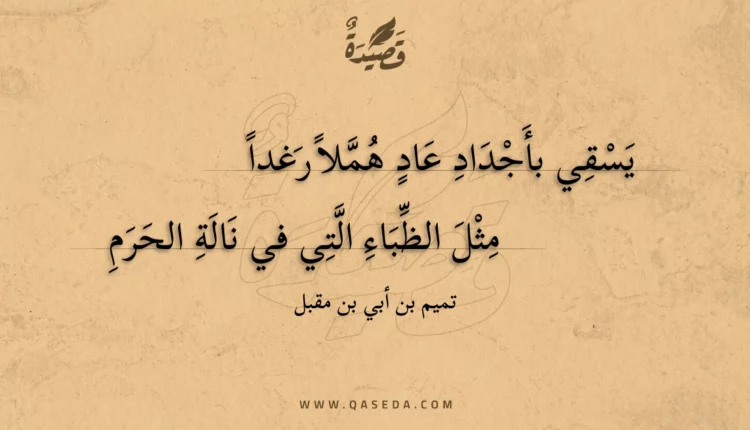 قَصِيْدَةٌ
يَسْقِي بأَجْدَادِ عَادٍ هُمَّلاً رَغداً
مِثْلَ الظِّبَاءِ الَّتِي في نَالَةِ الحَرَمِ
تميم بن أبي بن مقبل
WWW.QASEDA.COM